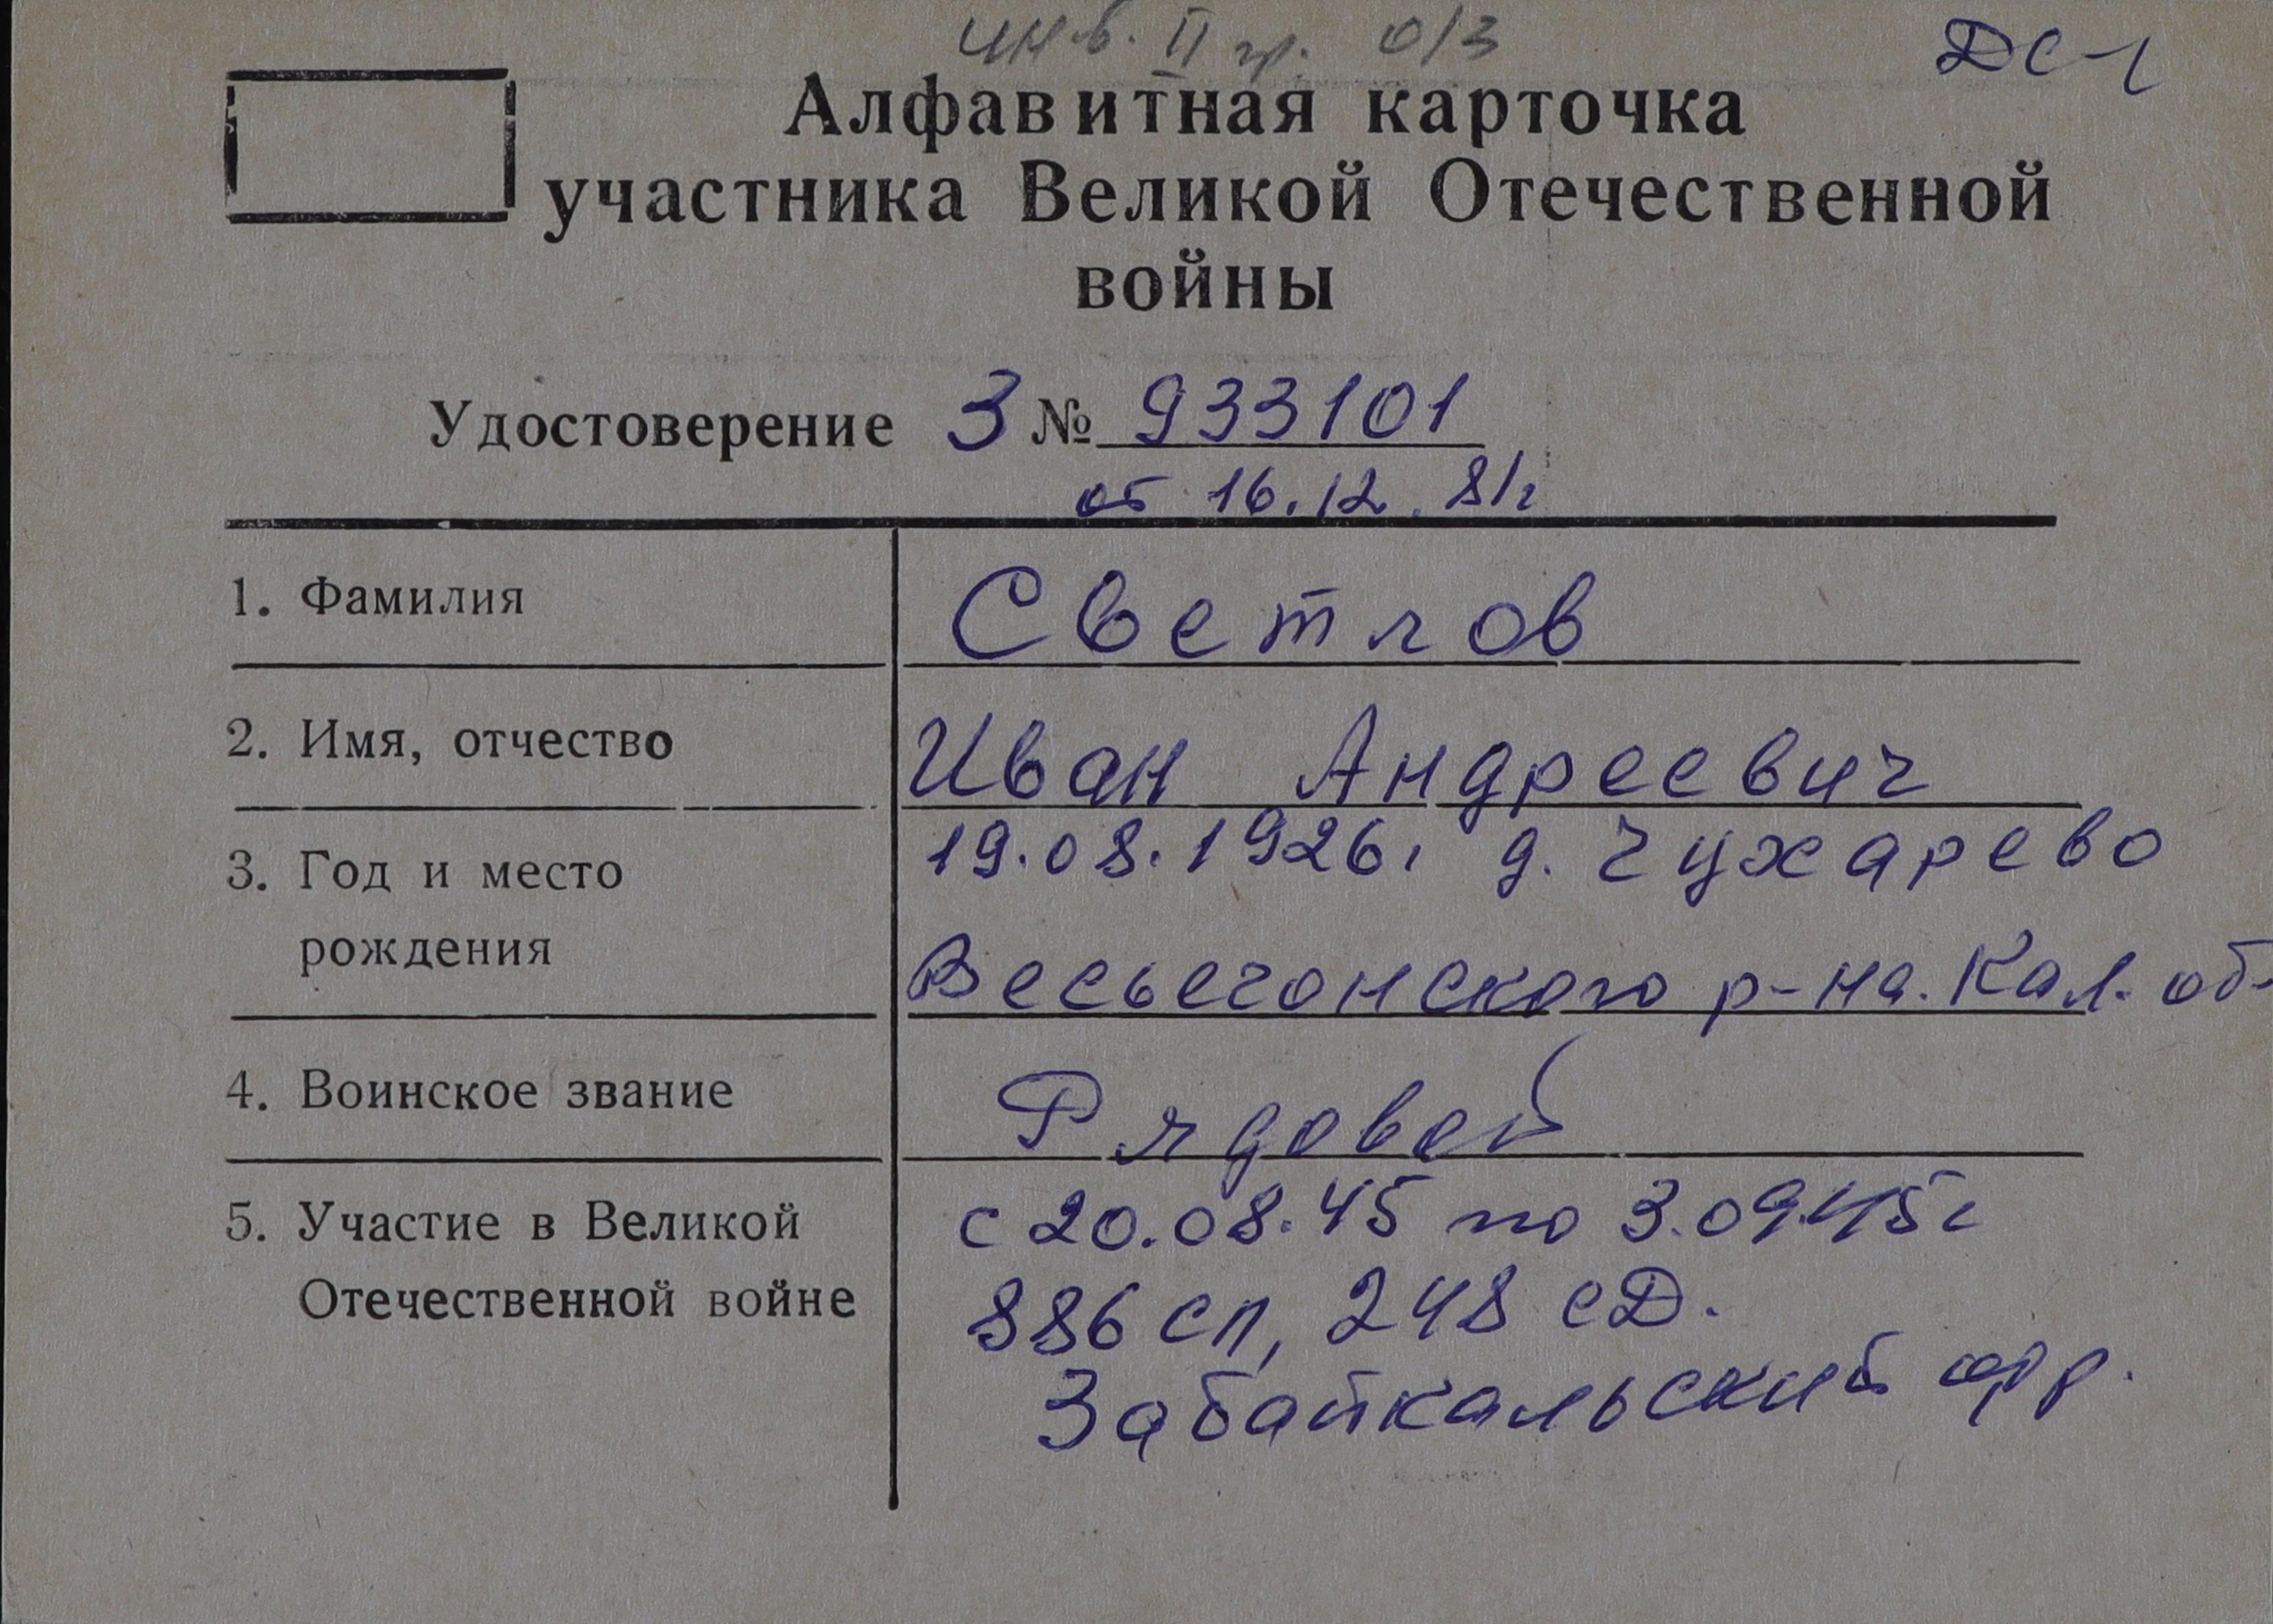 инв. II гр. о/з
ДС-1
Алфавитная карточка
участника Великой Отечественной
войны
Удостоверение З № 933101
от 16.12.81г
1. Фамилия Светлов
2. Имя, отчество Иван Андреевич
3. Год и место 19.08.1926г д. Чухарево
рождения Весьегонского р-на. Кал. об-
4. Воинское звание Рядовой
5. Участие в Великой с 20.08.45 по 3.09.45г
Отечественной войне 886 сп, 248 сД.
Забайкальский фр.